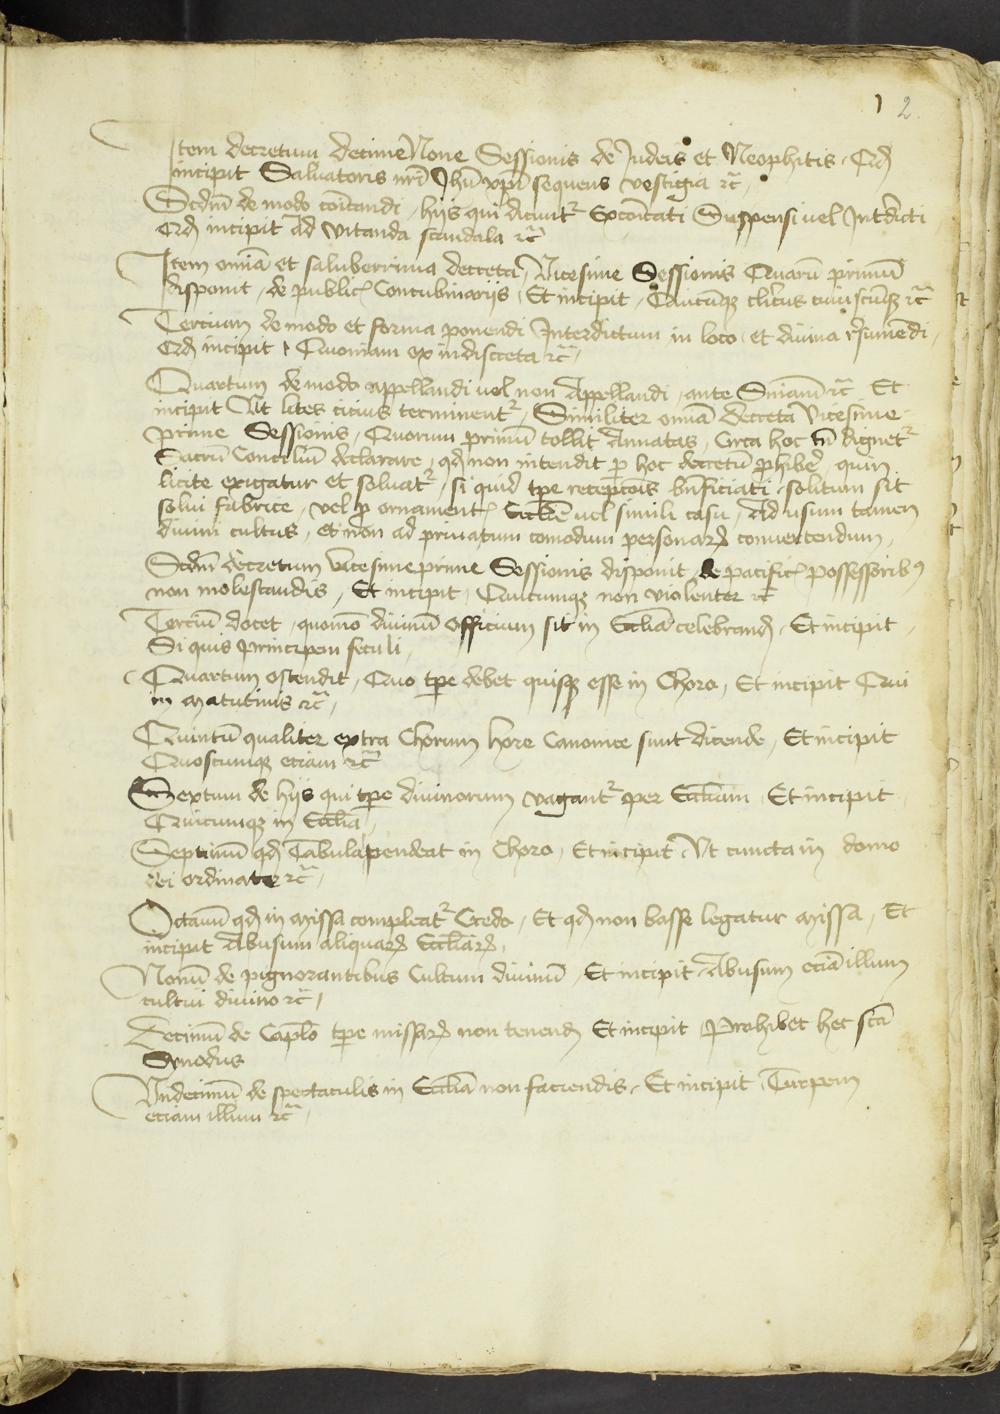 1 2.
Item decretum decime None Sessionis de Iudeis et Neophitis. Qđ
incipit Saluatoris nr̄i Ihū xp̄i sequens vestigia ꝛc̄
Scdm̄ de modo coīcandi, hijs qui dicunt² Excoīcati Suspensi uel Int̄dicti
Qđ incipit Ad vitanda scandala ꝛc̄
Item om̄ia et saluberrima decreta, Vicesime Sessionis Quarū primū
disponit, de public̄ Concubinarijs, Et incipit, Quicūq; cl̄icus cuiuscūq; ꝛc̄
Tercium de modo et forma ponendi Interdictum in loco, et diuina r̄sumēdi,
Qđ incipit, Quoniam ex indiscreta ꝛc̄,
Quartum de modo appellandi uel non Appellandi, ante Sniam̄ ꝛc̄ Et
incipit Vt lites citius terminent², Similiter om̄ia decreta Vicesime
prime Sessionis, Quorum primū tollit Annatas, Circa hoc tn̄ dignet²
Sacrū Conciliū declarare, qđ non intendit ꝑ hoc decretū ꝓhiber̄, quin
licite exigatur et soluat², si quid tp̄e recepc̄ois bn̄ficiati solitum sit
solui fabrice, vel ꝓ ornament̄ Eccl̄ie uel simili casu, Ad usum tamen
diuini cultus, et non ad priuatum comodum personarꝝ conuertendum,
Scdm̄ decretum Vicesimeprime Sessionis disponit, de pacific̄ possessoribꝰ
non molestandis, Et incipit, Quicumq; non violenter ꝛc̄
Terciū docet, quomō diuinū officium sit in Eccl̄ia celebranđ, Et incipit,
Si quis principem seculi,
Quartum ostendit, Quo tp̄e debet quisq; esse in Choro, Et incipit Qui
in matutinis ꝛc̄,
Quintū qualiter extra Chorum hore Canonice sunt dicende, Et incipit
Quoscumq; eciam ꝛc̄
Sextum de hijs qui tp̄e diuinorum vagant² per Eccl̄iam, Et incipit
Quicumq; in Eccl̄ia,
Septimū qđ Tabula pendeat in Choro, Et incipit Vt cuncta in domo
dei ordinate ꝛc̄,
Octauū qđ in missa compleat² Credo, Et qđ non basse legatur missa, Et
incipit Abusum aliquarꝝ Eccl̄iarꝝ,
Nonū de pignorantibus Cultum diuinū, Et incipit Abusum eciā illum
cultui diuino ꝛc̄,
Decimū de Capl̄o tp̄e missarꝝ non tenenđ Et incipit Prohibet hec sc̄a
Synodus
Vndecimū de spectaculis in Eccl̄ia non faciendis, Et incipit, Turpem
eciam illum ꝛc̄,